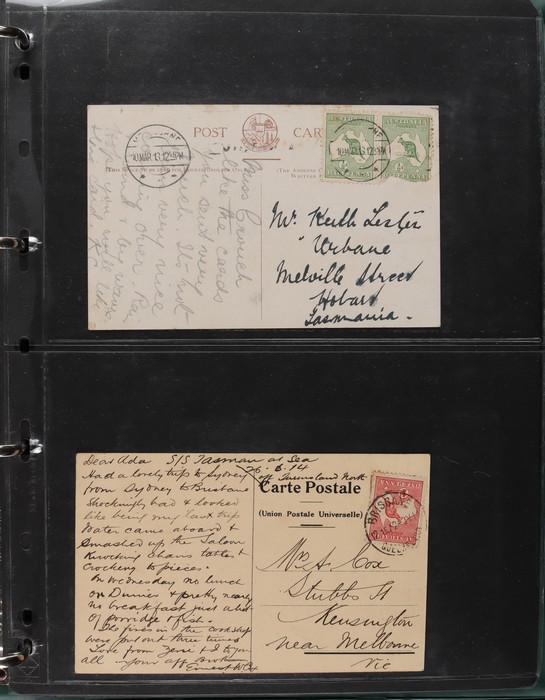 POST CAR
10 MAR 13 12.45PM
10 MAR 13 12.45PM
Miss Crouch
like the cards
you sent very
much. It's not
very nice
over
Hope you will
Mr. Keith Lester
"Urbane
Melville Street
Hobart
Tasmania.
Dear Ada S/S Tasman at Sea
26.6.14
off Queensland North
Had a lovely trip to Sydney
from Sydney to Brisbane
Shockingly bad & looked
like being my last trip
Water came aboard &
Smashed up the Saloon
Knocking chairs tables &
Crockery to pieces.
On Wednesday no lunch
or Dinner & pretty nearly
no breakfast just a bit
of porridge & fish.
The fires in the cookshop
were put out three times
Love from & I to you
all your aff brother
Ernest W Cox
Carte Postale
(Union Postale Universelle)
BRISBANE
Mrs A. Cox
Stubbs St
Kensington
near Melbourne
Vic